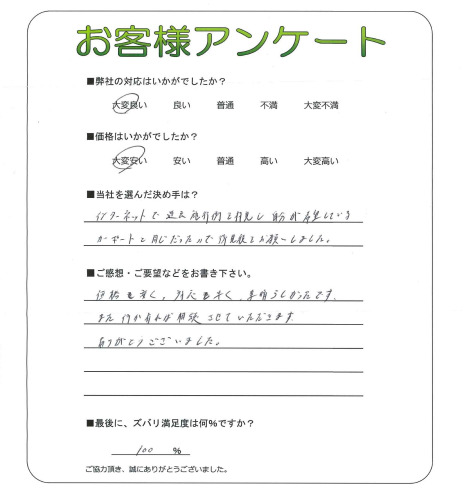 お客様アンケート
■弊社の対応はいかがでしたか？
大変良い 良い 普通 不満 大変不満
■価格はいかがでしたか？
大変安い 安い 普通 高い 大変高い
■当社を選んだ決め手は？
インターネットで過去施行例を拝見し 自分が希望している
カーポートと同じだったので御見積をお願いしました。
■ご感想・ご要望などをお書き下さい。
価格も安く、対応も早く、素晴らしかったです。
また何か有れば相談させていただきます。
ありがとうございました。
■最後に、ズバリ満足度は何％ですか？
100 ％
ご協力頂き、誠にありがとうございました。